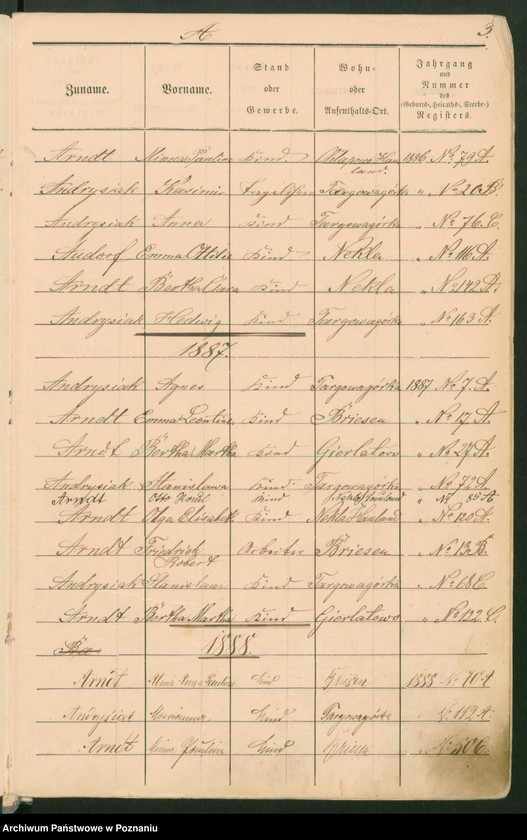 A
3.
Zuname. Vorname. Stand oder Gewerbe. Wohn- oder Aufenthalts-Ort. Jahrgang und Nummer des (Geburts-, Heiraths-, Sterbe-) Registers.
Arndt Minna Pauline Kind 1886 No 79 A.
land.
Andrysiak Kasimir Targowagórka " No 20 B.
Andrysiak Anna Kind Targowagórka " No 76 C.
Audorf Emma Ottilie Kind Nekla " No 116 A.
Arndt Bertha Kind Nekla " No 142 A.
Andrysiak Hedwig Kind Targowagórka " No 163 A.
1887.
Andrysiak Agnes Kind Targowagórka 1887 No 7. A.
Arndt Emma Leontine Kind Briesen " No 17. A.
Arndt Bertha Martha Kind Gierlatowo " No 27. A.
Andrysiak Stanislawa Kind Targowagórka " No 72 A.
Arndt Otto Kind Nekla Hauland " No 85 A.
Arndt Olga Elisabeth Kind Nekla Hauland " No 120 A.
Arndt Friedrich Arbeiter Briesen " No 13 B.
Robert
Andrysiak Stanislaus Kind Targowagórka " No 68 C.
Arndt Bertha Martha Kind Gierlatowo " No 122 C.
1888.
Arndt Anna Pauline Kind Briesen 1888 No 70 A.
Andrysiak Marianna Kind Targowagórka No 112 A.
Arndt Pauline Kind " No
Archiwum Państwowe w Poznaniu